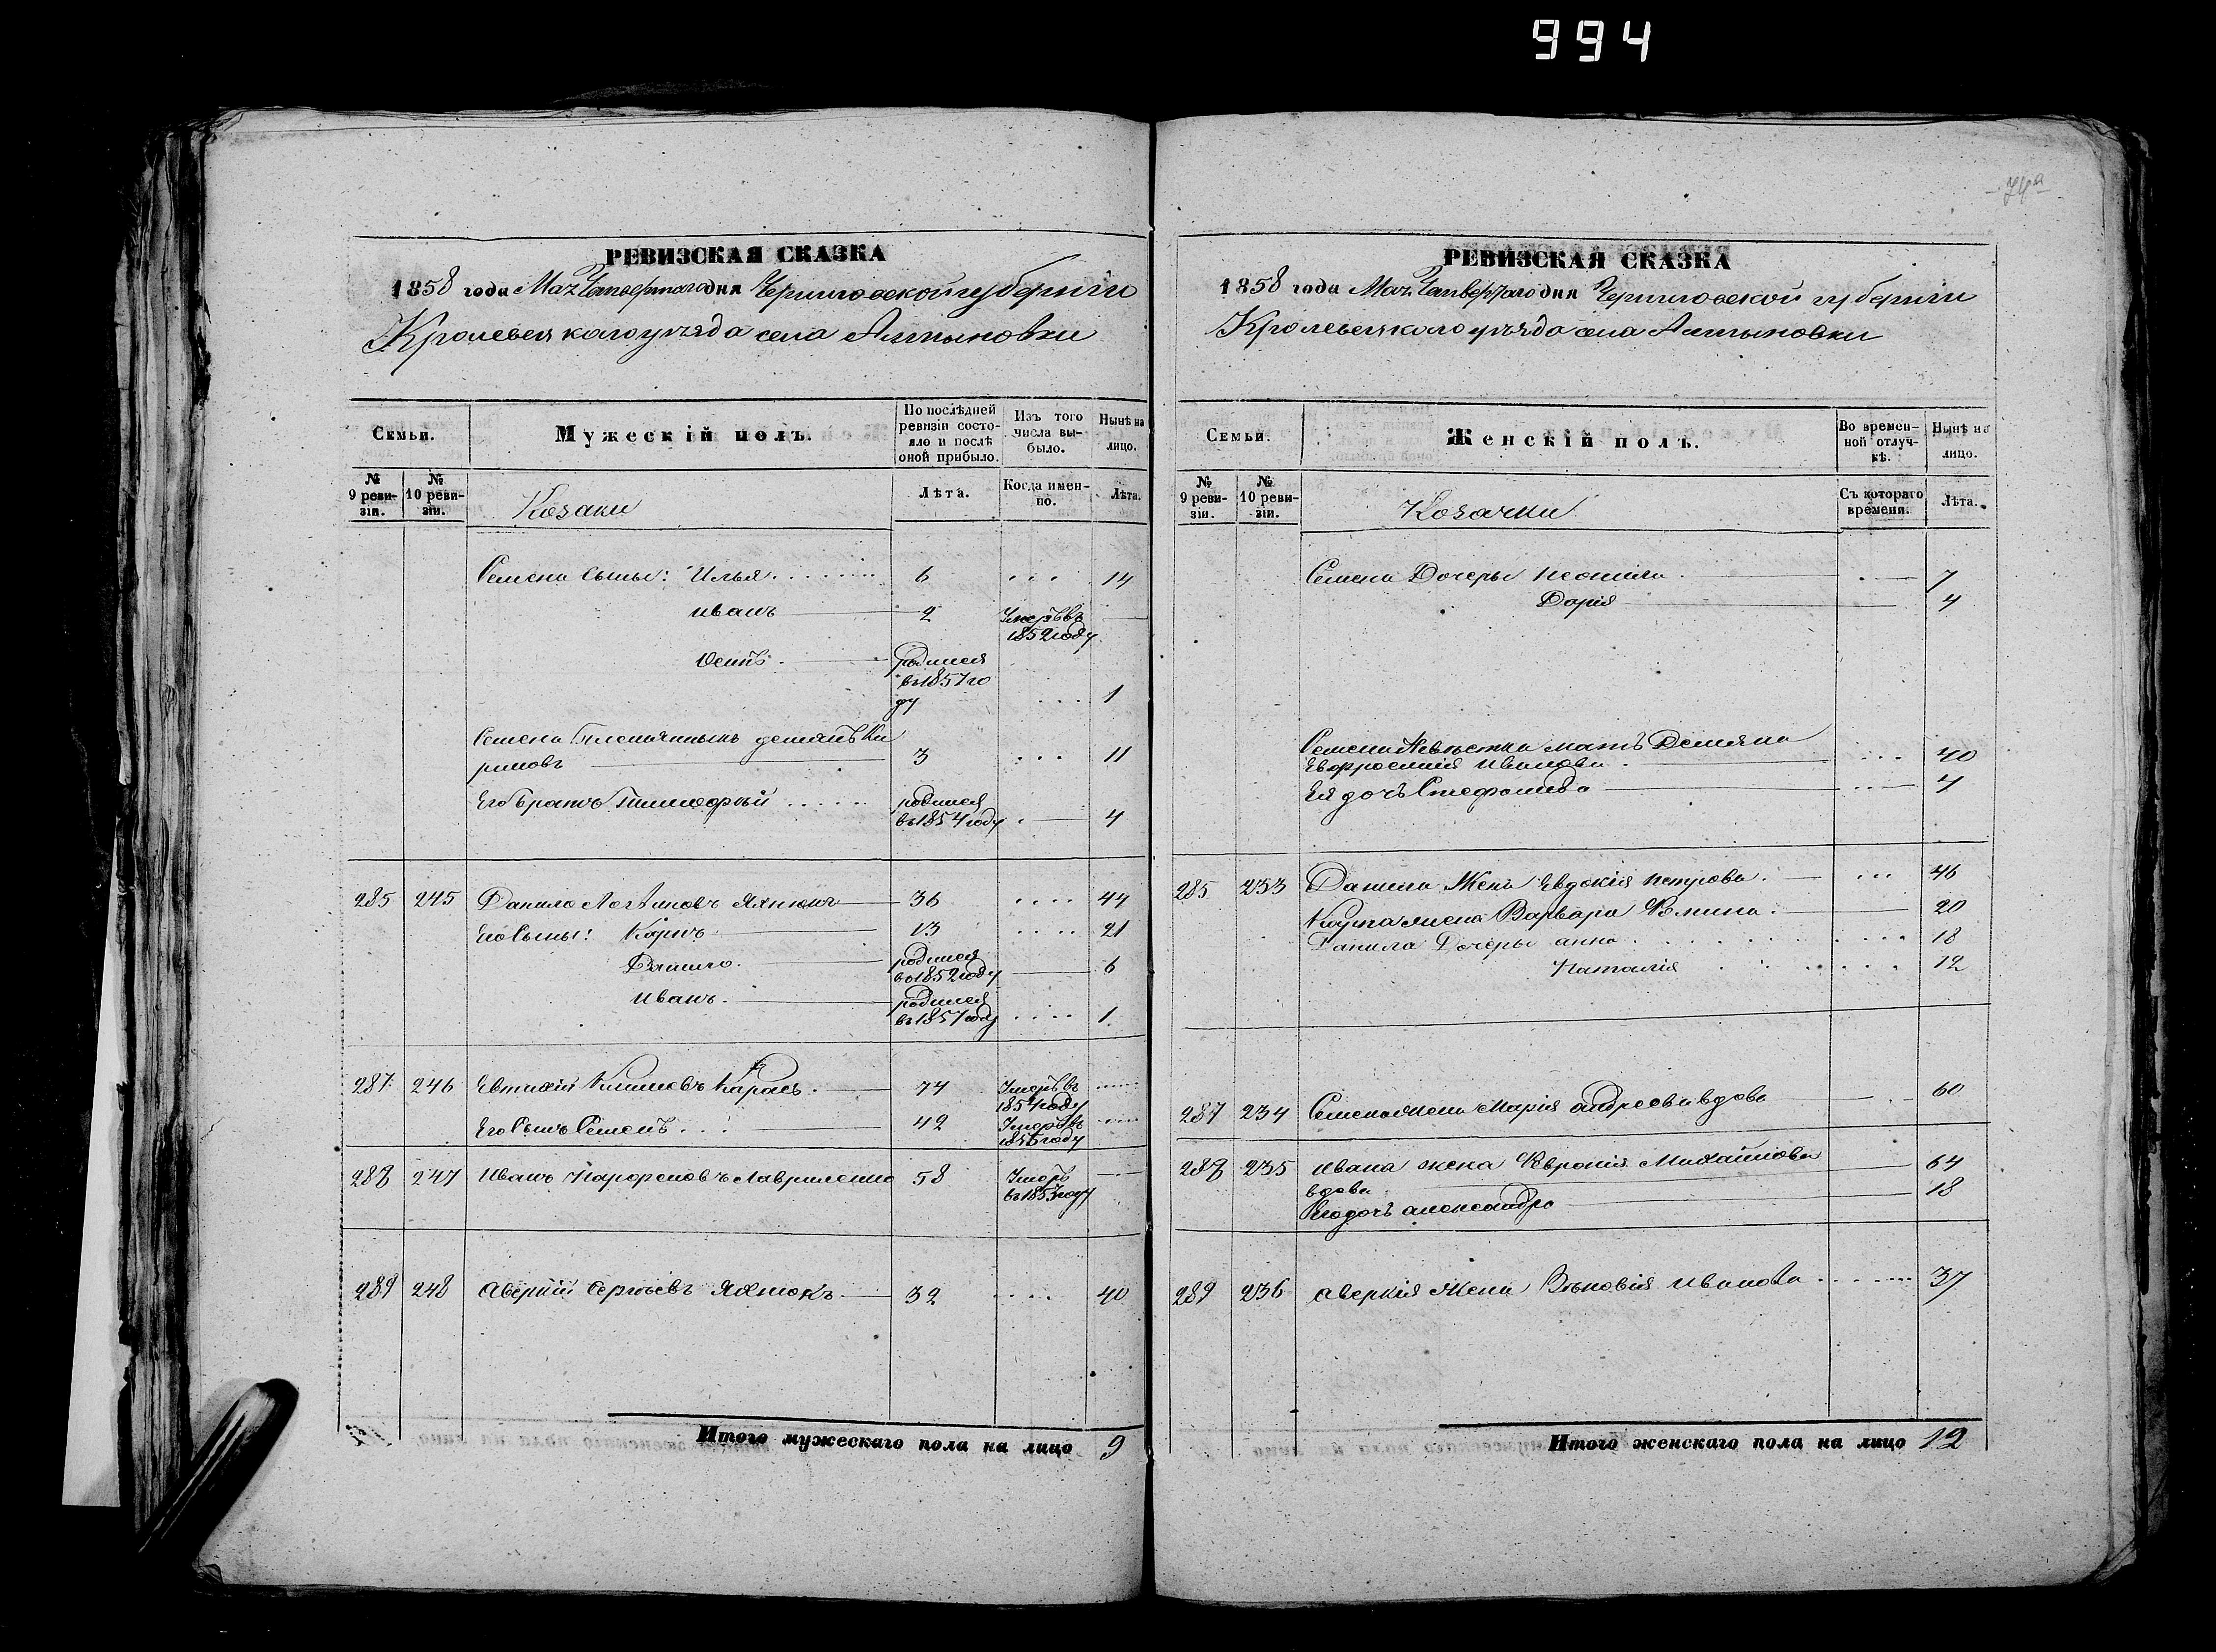 994
74а
РЕВИЗСКАЯ СКАЗКА
1858 года Мая Четвертаго дня Черниговской губерніи
Кролевецкаго уѣзда села Алтыновки
Семьи.
Мужескій полъ.
По послѣдней ревизіи состояло и послѣ оной прибыло.
Изъ того числа выбыло.
Нынѣ на лицо.
№ 9 ревизіи.
№ 10 ревизіи.
Козаки
Лѣта.
Когда именно.
Лѣта.
Семена Сыны: Илья 6 14
Иванъ 2 Умеръ въ
1852 году
Осипъ родился
въ 1857 го
ду 1
Семена племянникъ Демянъ Ки
риловъ 3 11
Его братъ Тимофей родился
въ 1854 году 4
285 245 Данило Логвиновъ Яхнюкъ 36 44
Его Сыны: Карпъ 13 21
Данило родился
въ 1852 году 6
Иванъ родился
въ 1857 году 1
287 246 Евтихій Климовъ Карась 74 Умеръ въ
1854 году
Его Сынъ Семенъ 42 Умеръ въ
году
288 247 Иванъ Парфеновъ Лавриленко 58 Умеръ
въ 1853 году
289 248 Аверкій Сергѣевъ Яхнюкъ 32 40
Итого мужескаго пола на лицо 9
РЕВИЗСКАЯ СКАЗКА
1858 года Мая Четвертаго дня Черниговской губерніи
Кролевецкаго уѣзда села Алтыновки
Семьи.
Женскій полъ.
Во временной отлучкѣ.
Нынѣ на лицо.
№ 9 ревизіи.
№ 10 ревизіи.
Козачки
Съ котораго времени.
Лѣта.
Семена Дочеры Неонила 7
Дарія 4
Семена Невѣстка мать Демяна
Евфросинія Иванова 40
Ея дочь Стефанида 4
285 233 Данила Жена Евдокія Петрова 46
Карпа жена Варвара Фомина 20
Данила Дочеры Анна 18
Наталія 12
287 234 Семена жена Марія Андреева вдова 60
288 235 Ивана жена Февронія Михайлова 64
вдова
Его дочь Александра 18
289 236 Аверкія Жена Зѣновія Иванова 37
Итого женскаго пола на лицо 12